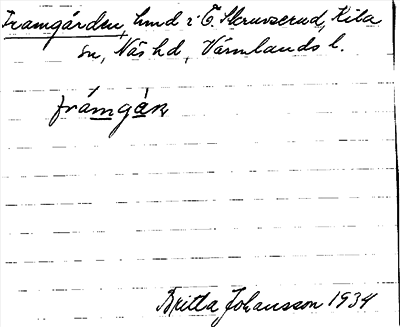 Framgården, hmd i Ö. Skruvserud, Kila
sn, Näs hd, Värmlands l.
frámgàṇ
Britta Johansson 1934